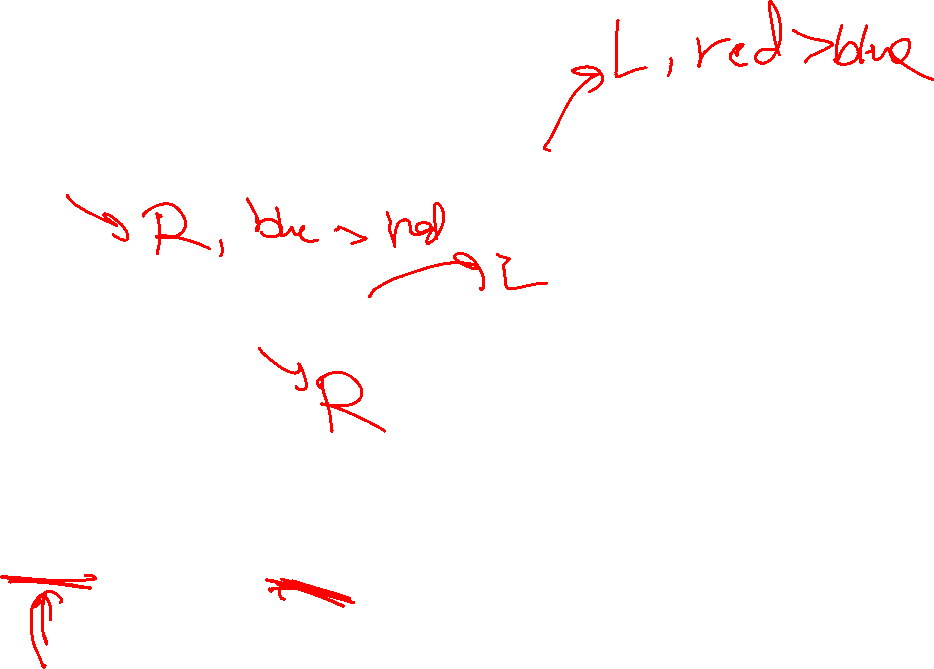 L, red > blue
R, blue > red
L
R